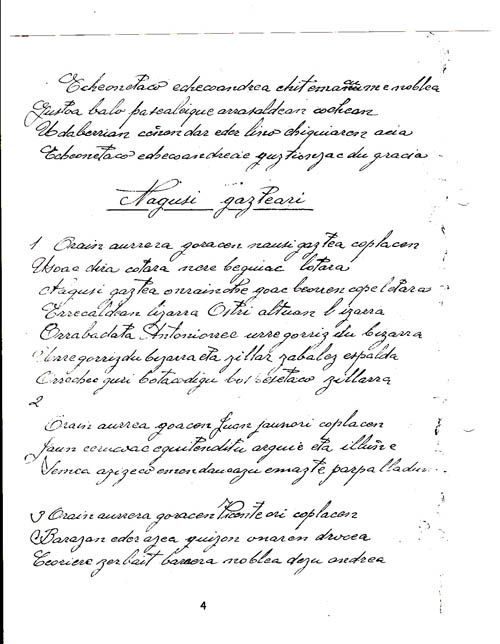 Echeonetaco echecoandrea chit emacume noblea
Gustoa balo pasealeique arrasaldean cochean
Udaberrian coñondar eder lino chiquiaren acia
Echeonetaco echecoandreaic guztionzac du gracia
Nagusi gazteari
1 Orain aurrera goracen nausi gaztea coplacen
Usoac dira cotara nere beguiac lotara
Nagusi gaztea onraindhe goac beorren copeletara
Errecaldean lizarra Ostri altuan bizarra
Orrabadata Antoniorrec urregorriz du bizarra
Urregorrizdu bizarra eta zillar zabalez espalda
Errechec guri botacodigu bost besetaco zillarra
2
Orain aurrea goacen Juan jaunori coplacen
Jaun ceruvac equitenditu arguie eta illuñe
Semea azizeco emondauzazu emazte parpalladun
3 Orain aurrera goracen Vicente ori coplacen
Barazan eder azea guizon onaren drocea
Ceoriere zerbait barrera noblea dezu andrea
4